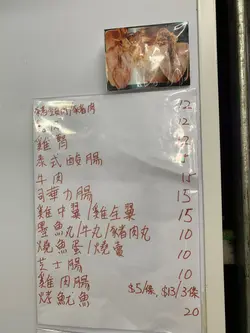 豬肉 12
12
雞腎
泰式酸腸 5
牛肉 15
司華力腸 15
雞中翼/雞全翼 15
墨魚丸/牛丸/豬肉丸 10
燒魚蛋/燒賣 10
芝士腸 10
雞肉腸 $5/條, $13/3條
烤魷魚 20